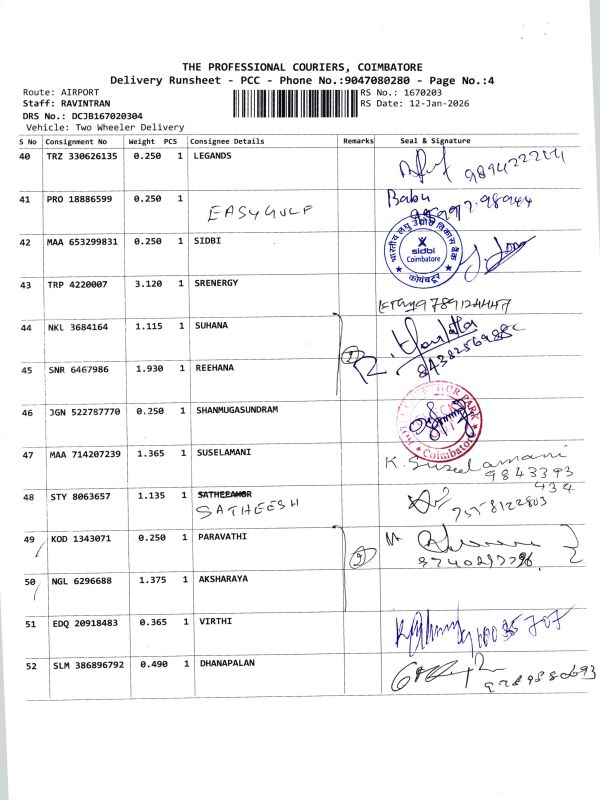 THE PROFESSIONAL COURIERS, COIMBATORE
Delivery Runsheet - PCC - Phone No.:9047080280 - Page No.:4
Route: AIRPORT RS No.: 1670203
Staff: RAVINTRAN RS Date: 12-Jan-2026
DRS No.: DCJB167020304
Vehicle: Two Wheeler Delivery
S No Consignment No Weight PCS Consignee Details Remarks Seal & Signature
40 TRZ 330626135 0.250 1 LEGANDS
41 PRO 18886599 0.250 1 Babu
EASYGULF
42 MAA 653299831 0.250 1 SIDBI
भारतीय लघु उद्योग विकास बैंक
sidbi
Coimbatore
कोयंबटूर
43 TRP 4220007 3.120 1 SRENERGY
44 NKL 3684164 1.115 1 SUHANA
45 SNR 6467986 1.930 1 REEHANA
46 JGN 522787770 0.250 1 SHANMUGASUNDRAM
Coimbatore
47 MAA 714207239 1.365 1 SUSELAMANI
K. Suseelamani
9843393
434
48 STY 8063657 1.135 1
SATHEESH 7558122803
49 KOD 1343071 0.250 1 PARAVATHI
50 NGL 6296688 1.375 1 AKSHARAYA
51 EDQ 20918483 0.365 1 VIRTHI
52 SLM 386896792 0.490 1 DHANAPALAN